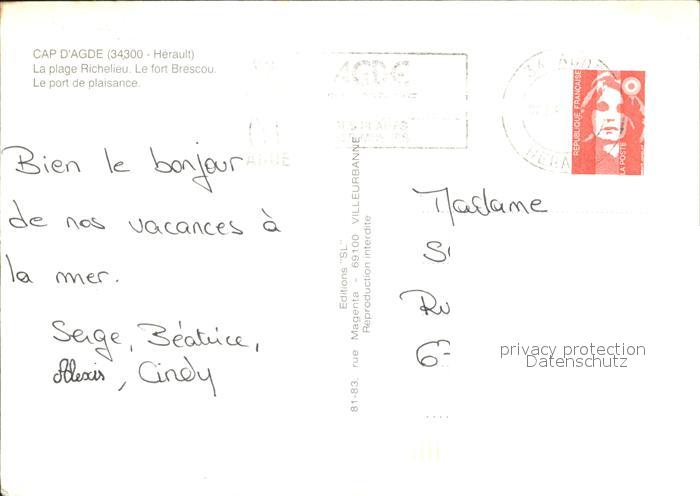 CAP D'AGDE (34300 - Hérault)
La plage Richelieu. Le fort Brescou.
Le port de plaisance.
AGDE
34 AGDE
HERAULT
REPUBLIQUE FRANÇAISE
LA POSTE
AGDE
Bien le bonjour
de nos vacances à
la mer.
Serge, Béatrice,
Alexis, Cindy
Editions "SL"
81-83, rue Magenta - 69100 VILLEURBANNE
Reproduction interdite
Madame
S
Ru
6
privacy protection
Datenschutz